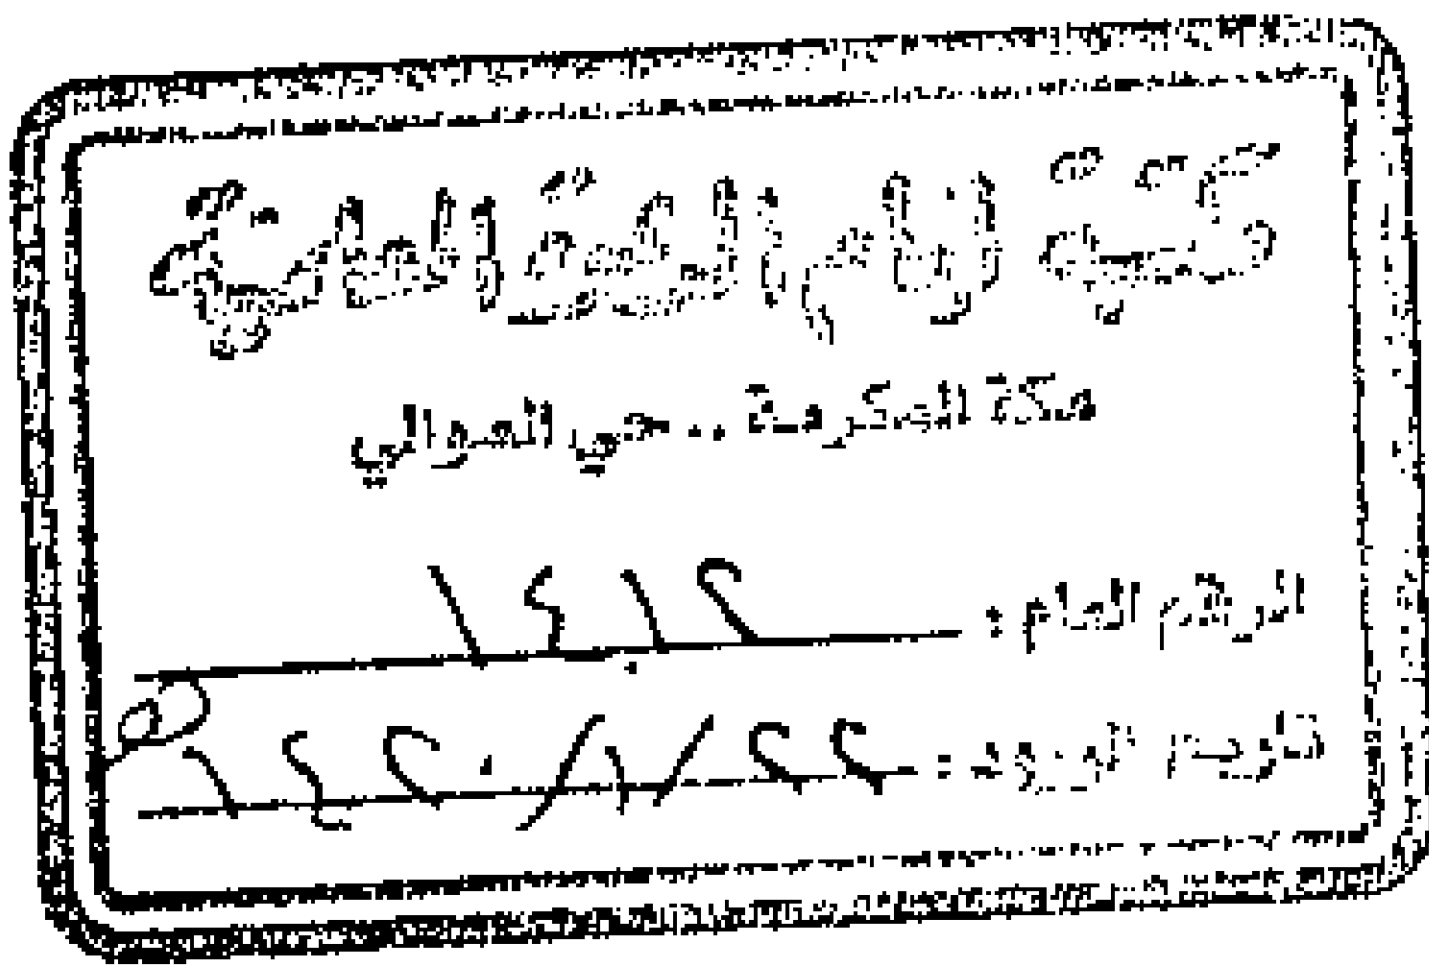 مكتبة إمام الدعوة العلمية
مكة المكرمة .. حي العوالي
الرقم العام : ١٤١٢
تاريخ الورود : ٢٢/١/١٤٢٠